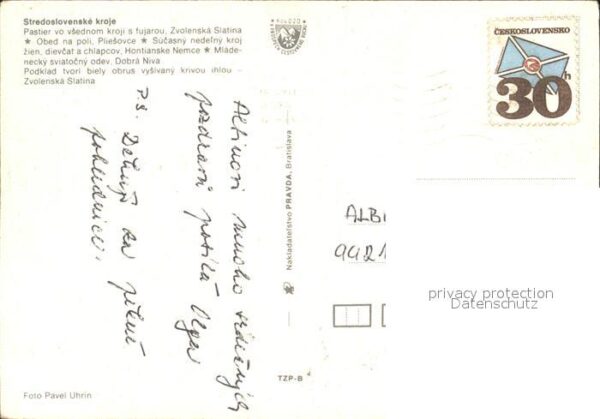 Stredoslovenské kroje
Pastier vo všednom kroji s fujarou, Zvolenská Slatina
★ Obed na poli, Pliešovce ★ Súčasný nedeľný kroj
žien, dievčat a chlapcov, Hontianske Nemce ★ Mláde-
necký sviatočný odev, Dobrá Niva
Podklad tvorí biely obrus vyšívaný krivou ihlou –
Zvolenská Slatina
mnoho srdečných
pozdravů posílá Olga
P.S. Děkuji za pěkné
pohlednice.
Foto Pavel Uhrin
Nakladateľstvo PRAVDA, Bratislava
TZP-B
ČESKOSLOVENSKO
30h
ALB
9921
privacy protection
Datenschutz